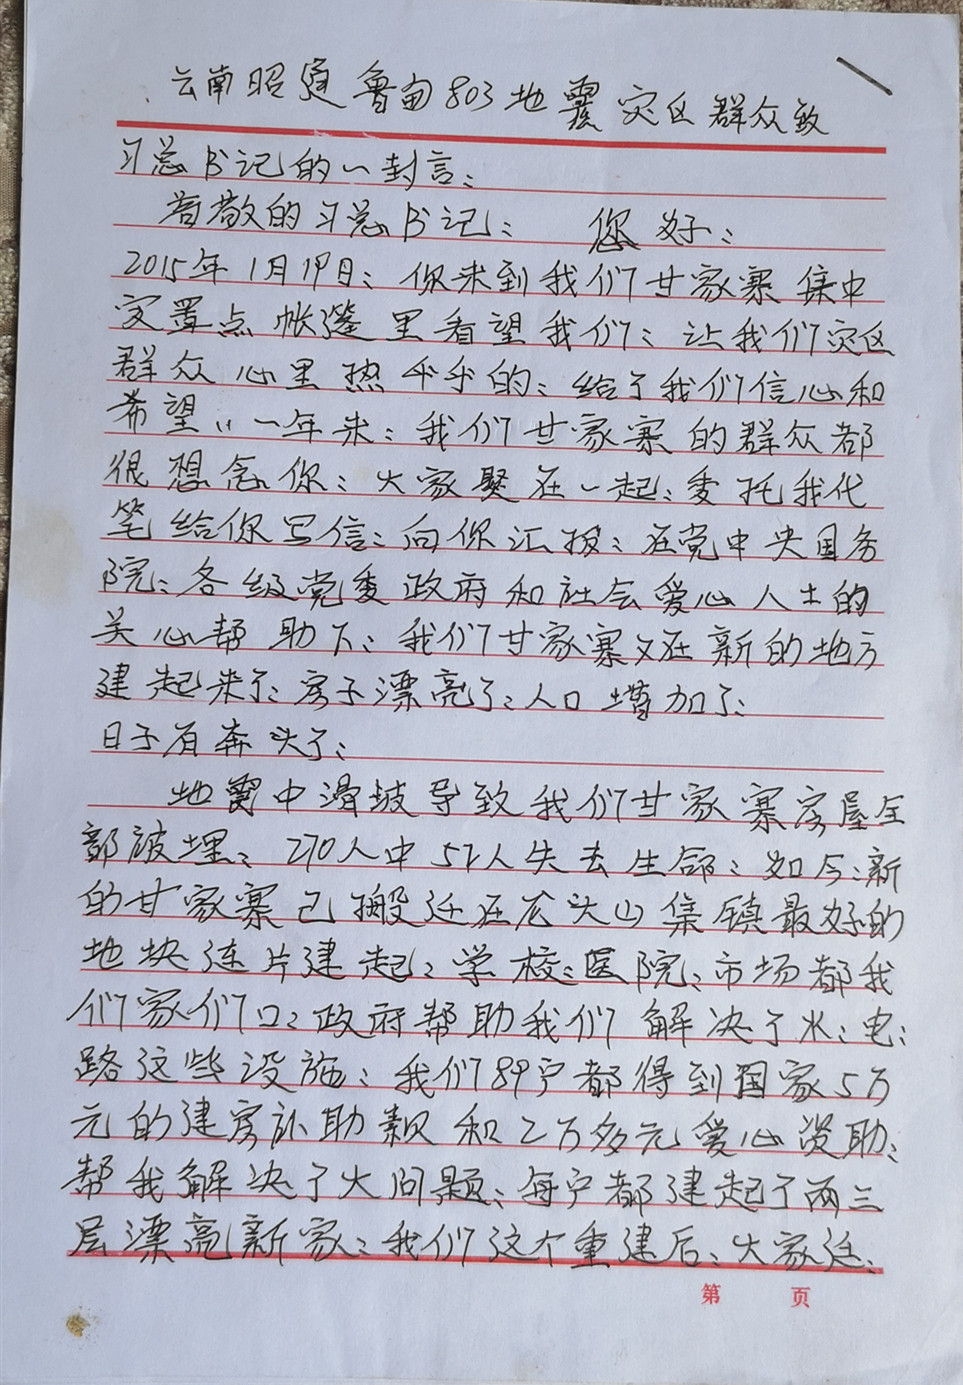 云南昭通鲁甸803地震灾区群众致
习总书记的一封言：
尊敬的习总书记： 您好：
2015年1月19日：你来到我们甘家寨集中
安置点帐篷里看望我们：让我们灾区
群众心里热乎乎的：给了我们信心和
希望：一年来：我们甘家寨的群众都
很想念你：大家聚在一起：委托我代
笔给你写信：向你汇报：在党中央国务
院：各级党委政府和社会爱心人士的
关心帮助下：我们甘家寨又在新的地方
建起来了：房子漂亮了：人口增加了：
日子有奔头了：
地震中滑坡导致我们甘家寨房屋全
部被埋：270人中57人失去生命：如今：新
的甘家寨已搬迁在龙头山集镇最好的
地块连片建起：学校：医院：市场都我
们家们口：政府帮助我们解决了水：电：
路这些设施：我们89户都得到国家5万
元的建房补助款和2万多元爱心资助：
帮我解决了大问题：每户都建起了两三
层漂亮新家：我们这个重建后：大家廷：
第 页